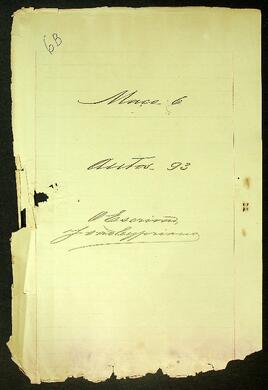 6B
Maço 6
Autos 93
O Escrivão,